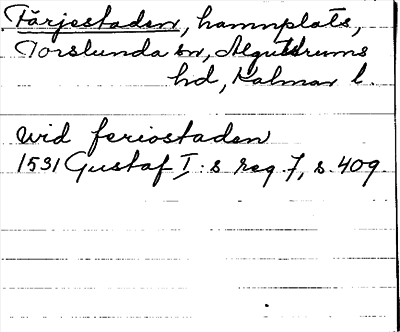 Färjestaden, hamnplats,
Torslunda sn, Algutsrums
hd, Kalmar l.
wid feriostaden
1531 Gustaf I:s reg. 7, s. 409.